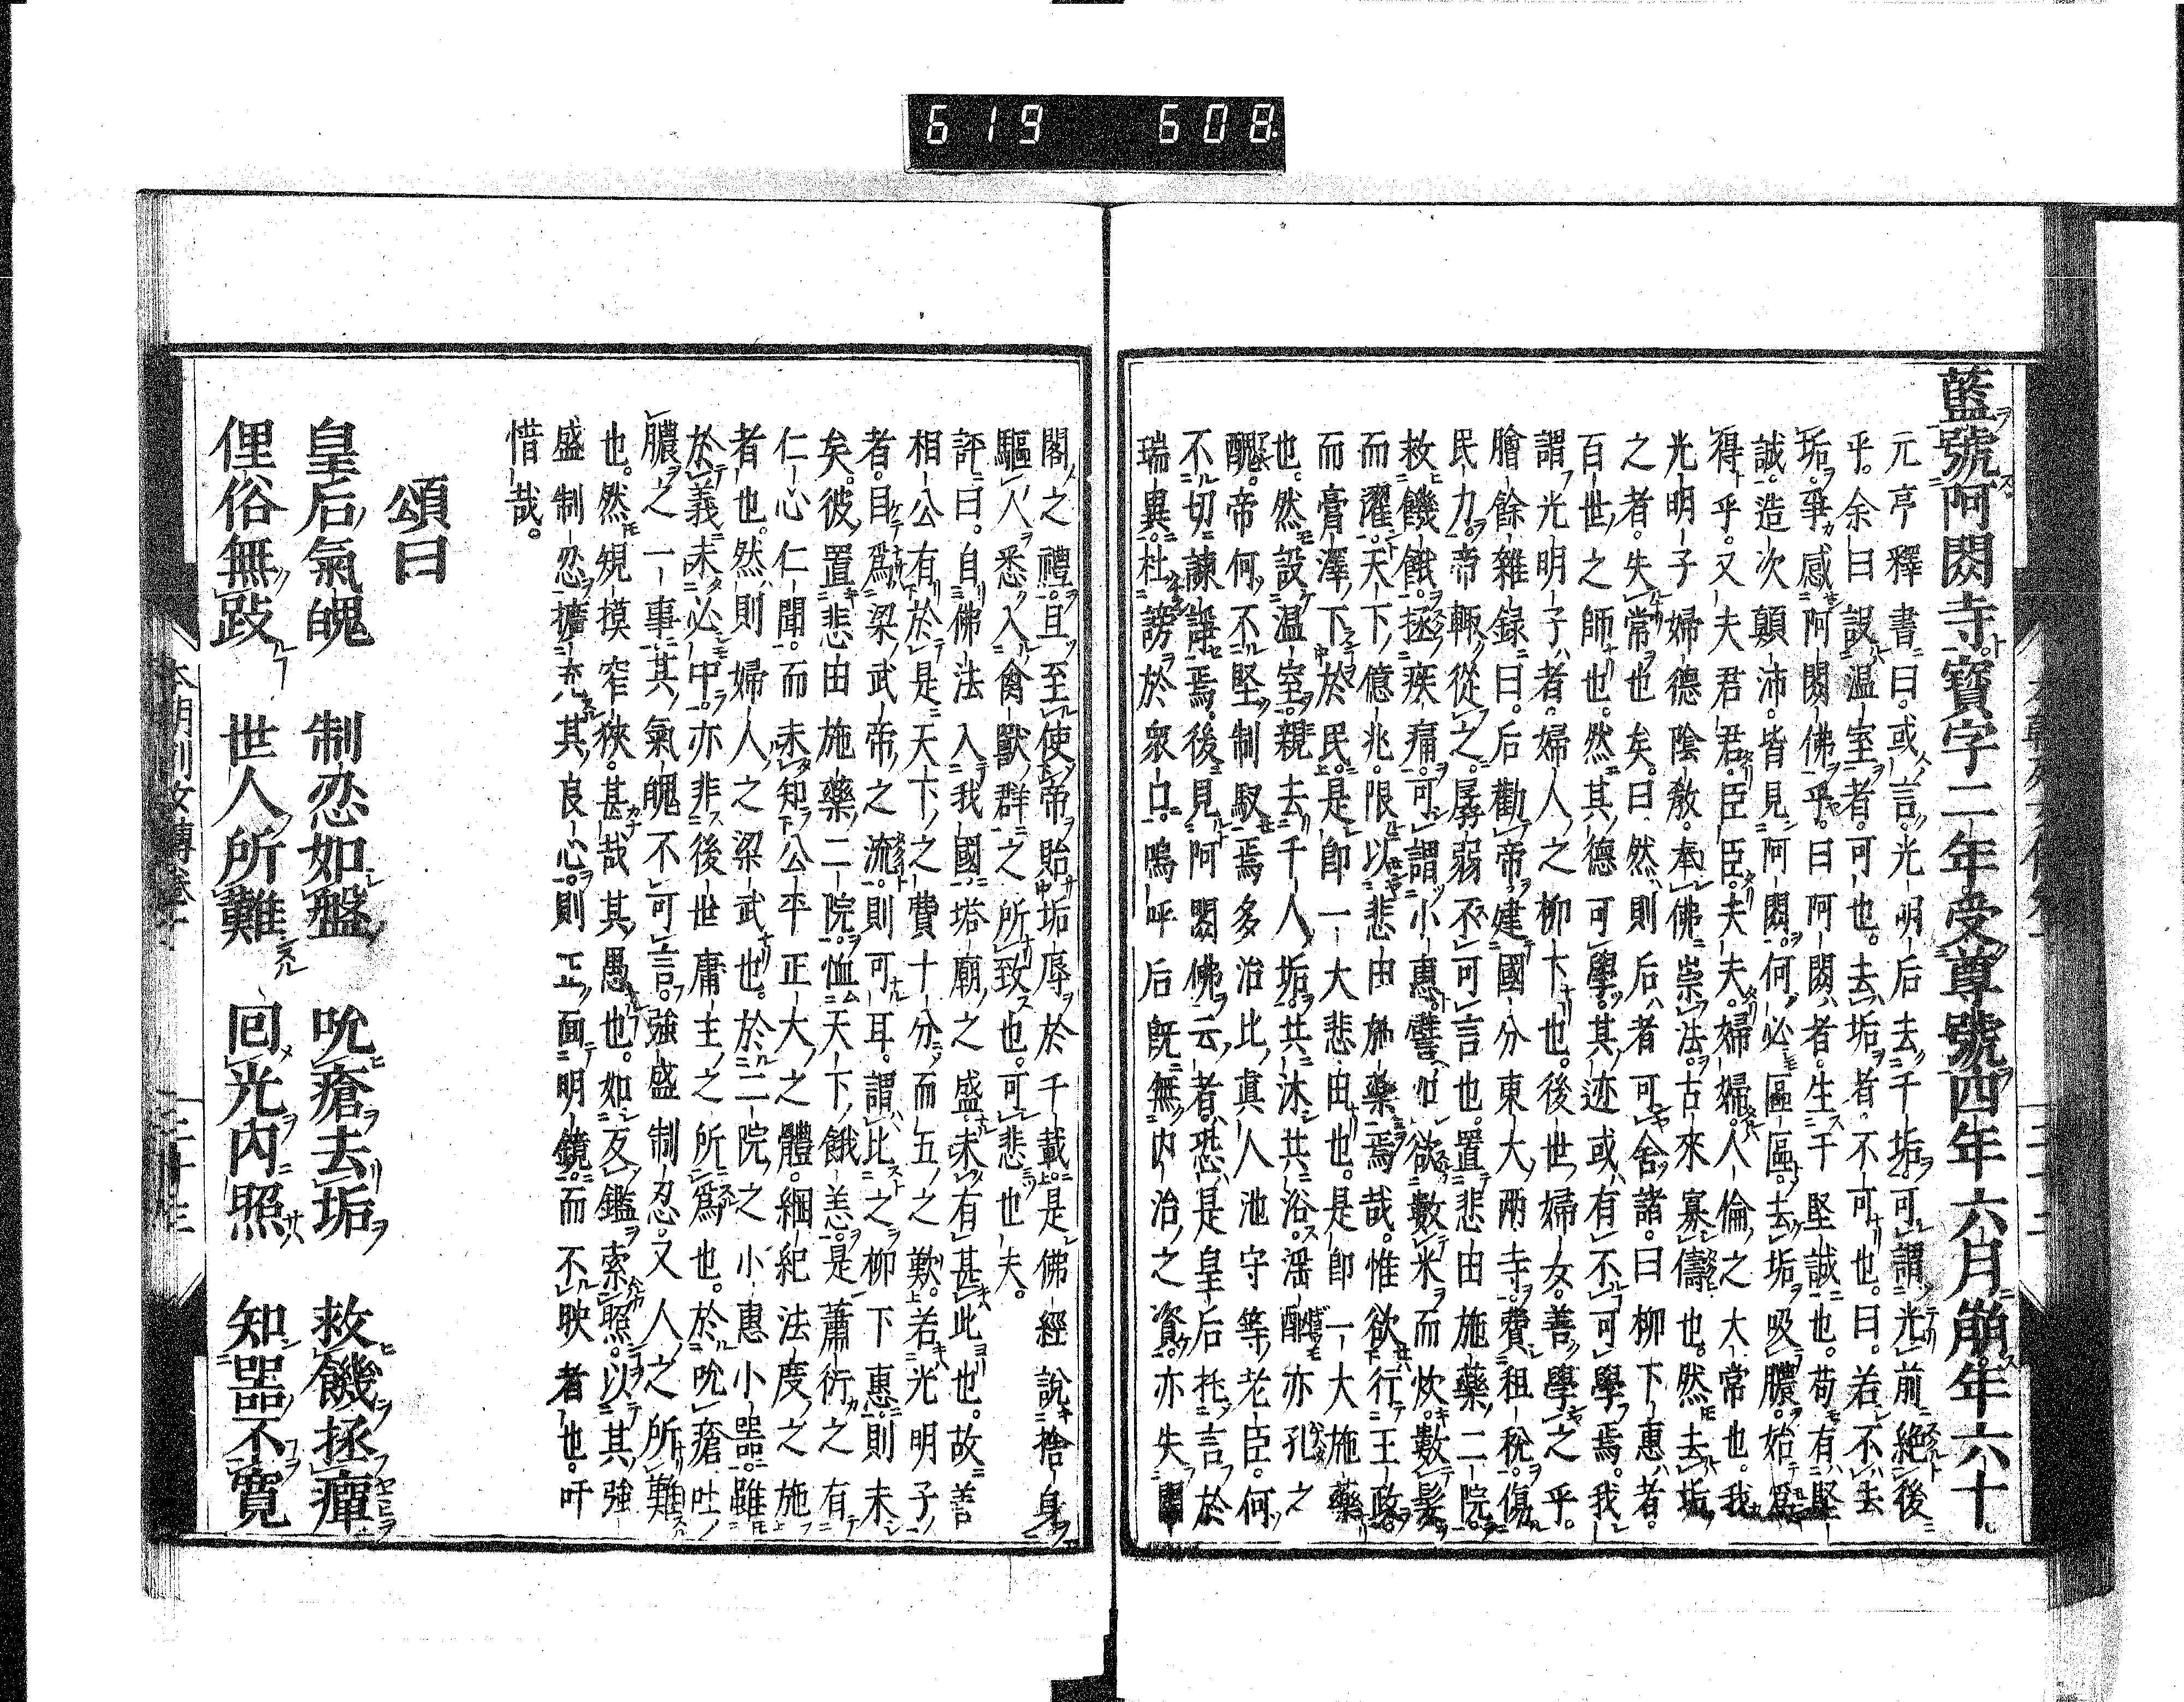 619 608
藍號阿閦寺寶字二年受尊號四年六月崩年六十。
元亨釋書曰。或言。光明后去千垢。可謂光前絶後
乎。余曰設温室者。可也。去垢者。不可也。曰。若不去
垢。爭感阿閦佛乎。曰阿閦者。生于堅誠也。苟有堅
誠。造次顛沛。皆見阿閦。何必區區去垢吸膿。始爲
得乎。又夫君君。臣臣。夫夫。婦婦。人倫之大常也。我
光明子婦德陰教。奉佛崇法。古來寡儔也。然去垢
之者。失常也矣。曰。然則后者可舍諸。曰柳下惠者。
百世之師也。然其德可學。其迹或有不可學焉。我
謂光明子者。婦人之柳下也。後世婦女。善學之乎。
膾餘雜録曰。后勸帝建國分東大兩寺。費租税。傷
民力。帝輙從之。孱弱不可言也。置悲田施藥二院。
救饑餓。拯疾痛。可謂小惠。譬如欲數米而炊。數髮
而濯。天下億兆。限以悲田施藥焉哉。惟欲行王政。
而膏澤下於民。是即一大悲田也。是即一大施藥
也。然設温室。親去千人垢。共沐共浴。滛酗亦孔之
醜。帝何不堅制馭焉多治比眞人池守等老臣。何
不切諫諍焉。後見阿閦佛云者。恐是皇后托言於
瑞異。杜謗於衆口。嗚呼后既無内治之資。亦失閨
閤之禮。且至使帝貽垢辱於千載。是佛經説捨身
驅人悉入禽獸群之所致也。可悲也夫。
評曰。自佛法入我國。塔廟之盛未有甚此也。故善
相公有於是天下之費十分而五之歎。若光明子
者。目爲梁武帝之流。則可耳。謂比之柳下惠則未
矣。彼置悲田施藥二院。恤天下餓恙。是蕭衍之有
仁心仁聞。而未知公平正大之體。綱紀法度之施
者也。然則婦人之梁武也。於二院之小惠小噐。雖
於義未必中。亦非後世庸主之所爲也。於吮瘡吐
膿之一事。其氣魄不可言。強盛制忍。又人之所難
也。然規摸窄狹。甚哉其愚也。如反鑑索照。以其強
盛制忍。擴充其良心。則正面明鏡。而不映者也。吁
惜哉。
頌曰
皇后氣魄 制忍如盤 吮瘡去垢 救饑拯癉
俚俗無跂 世人所難 回光内照 知噐不寬